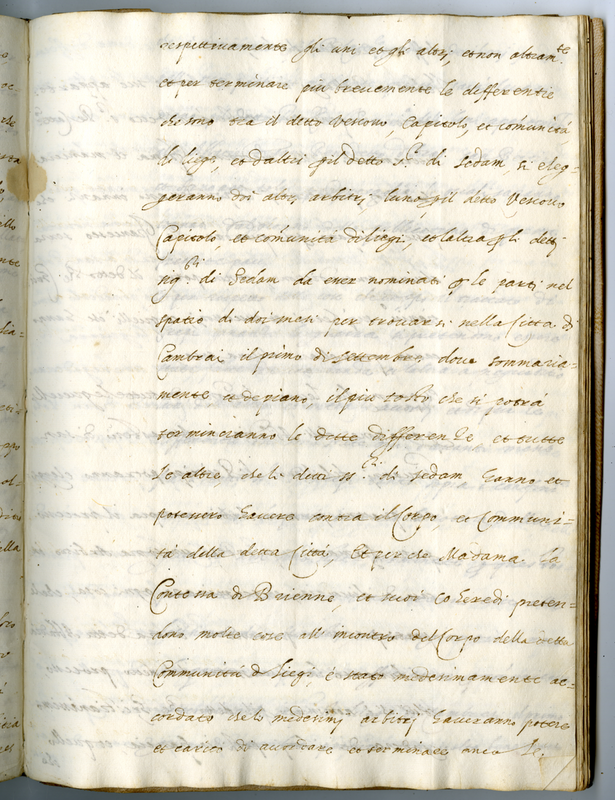 respettivamente gli uni et gli altri, et non altram.te
et per terminare più brevemente le differentie
che sono tra il detto Vescovo, Capitolo, et com̃unità
di liegi, et d'altri p il detto s.r di Sedam, si eleg-
geranno doi altri arbitri, l'uno p il detto Vescovo
Capitolo et com̃unità di liegi, et l'altra p li detti
sig.ri di Sedam da esser nominati p le parti nel
spatio di doi mesi per trovarsi nella Città di
Cambrai il primo di settembre, dove sommaria-
mente et de piano, il più tosto che si potrà
termineranno le dette differenze et tutte
le altre, che li detti ss.ri di Sedam hanno et
potessero havere contra il Corpo, et Communi-
tà della detta Città, Et per che Madama la
Contessa di Brienne, et suoi coheredi preten-
dono molte cose all'incontro del Corpo della detta
Communità di liegi, è stato medesimamente ac-
cordato che li medesimi arbitri haveranno potere
et carico di accordare et terminare anco le.